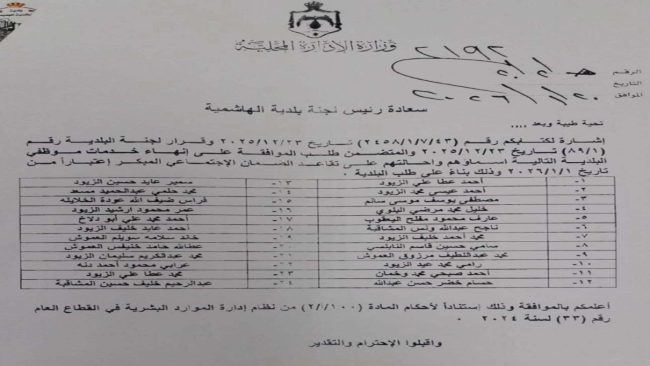 وزارة الإدارة المحلية
الرقم
التاريخ
الموافق
سعادة رئيس لجنة بلدية الهاشمية
تحية طيبة وبعد ....
إشارة لكتابكم رقم (٢٤٥٨/١/٧/٤٣) تاريخ ٢٠٢٥/١٢/٢٣ وقرار لجنة البلدية رقم
(٨٩/١) تاريخ ٢٠٢٥/١٢/٢٣ والمتضمن طلب الموافقة على إنهاء خدمات موظفي
البلدية التالية اسماؤهم واحالتهم على تقاعد الضمان الإجتماعي المبكر إعتباراً من
تاريخ ٢٠٢٦/١/١ وذلك بناءً على طلب البلدية .
١- أحمد عطا علي الزيود ١٣- سمير عايد حسين الزيود
٢- أحمد عيسى محمد الزيود ١٤- محمد حلمي عبدالحميد مسعد
٣- مصطفى يوسف موسى سالم ١٥- فراس ضيف الله عودة الخلايله
٤- خليل محمد مرضي البلوي ١٦- عمر محمود ارشيد الزيود
٥- عارف محمود مفلح اليعقوب ١٧- أحمد محمد علي ابو دلاخ
٦- ناجح عبدالله ونس المشاقبة ١٨- أحمد عايد خليف الزيود
٧- محمد أحمد الزيود ١٩- خالد سلامه سويلم العموش
٨- سامي حسين قاسم النابلسي ٢٠- عطالله حامد خنيفس العموش
٩- محمد عبداللطيف مرزوق العموش ٢١- محمد عبدالكريم سليمان الزيود
١٠- رامي محمد عيد الزيود ٢٢- عرابي محمود أحمد دنه
١١- أحمد صبحي محمد وخمان ٢٣- محمد عطا علي الزيود
١٢- حسام خضر حسن عبدالله ٢٤- عبدالرحيم خليف حسين المشاقبة
أعلمكم بالموافقة وذلك إستناداً لأحكام المادة (١٠٠/أ/٢) من نظام إدارة الموارد البشرية في القطاع العام
رقم (٣٣) لسنة ٢٠٢٤ .
واقبلوا الإحترام والتقدير